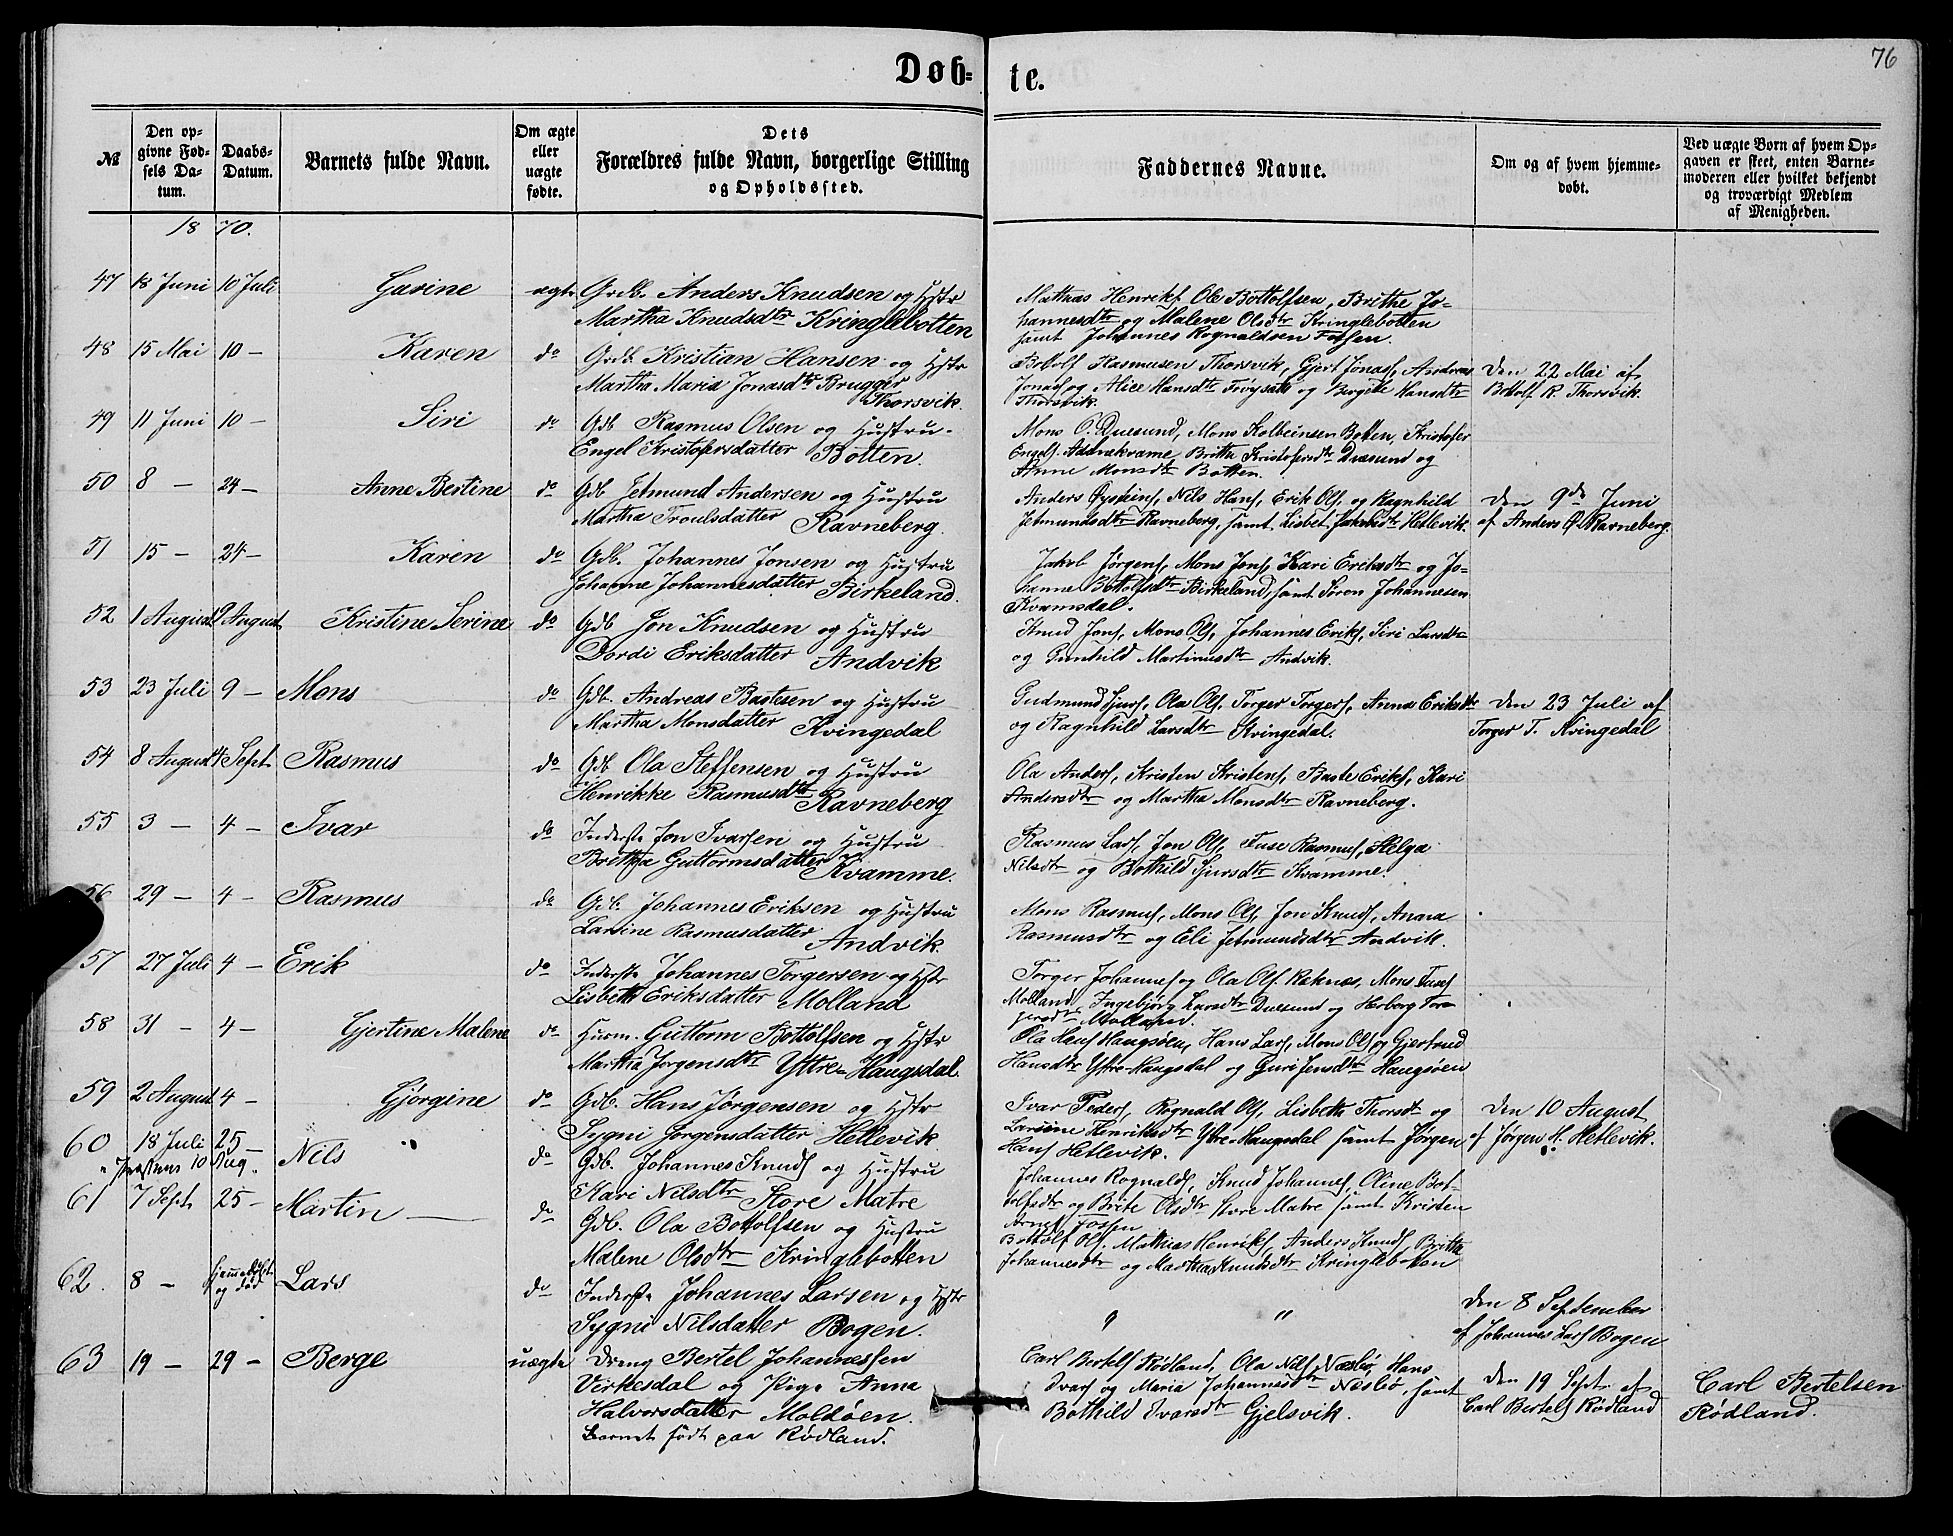 76
Døb-
te.
№
Den op-
givne Fød-
sels Da-
tum.
Daabs-
Datum.
Barnets fulde Navn.
Om ægte
eller
uægte
fødte.
Dets
Forældres fulde Navn, borgerlige Stilling
og Opholdssted.
Faddernes Navne.
Om og af hvem hjemme-
døbt.
Ved uægte Børn af hvem Op-
gaven er skeet, enten Barne-
moderen eller hvilket bekjendt
og troværdigt Medlem
af Menigheden.
18 70.
47 18 Juni 10 Juli Garine ægte Grdb. Anders Knudsen og Hstr
Martha Knudsdtr Kringlebotten
Mathias Henriks. Ole Bottolfsen, Brithe Jo-
hannesdtr og Malene Olsdtr Kringlebotten
samt Johannes Rognaldsen Fossen.
48 15 Mai 10 - Karen do Grdb Kristian Hansen og Hstr
Martha Maria Jonasdtr Brugger
Thorsvik.
Bottolf Rasmusen Thorsvik, Gjert Jonas, Andreas
Jonas og Alice Hansdtr Frøysæt og Bergite Hansdtr
Thorsvik.
Den 22 Mai af
Bottolf R. Thorsvik.
49 11 Juni 10 - Siri do Gdb Rasmus Olsen og Hustru
Engel Kristofersdatter Botten.
Mons O. Duesund, Mons Kolbeinsen Botten, Kristofer
Engels. Britta Kristofersdtr Duesund og
Anne Monsdtr Botten.
50 8 - 24 - Anne Bertine do Gdb Jetmund Andersen og Hustru
Martha Troulsdatter Ravneberg.
Anders Øysteins, Nils Hans, Erik Ols. og Ragnhild
Jetmundsdtr Ravneberg, samt Lisbet Jakobsdtr Hetlevik.
Den 9de Juni
af Anders Ø. Ravneberg.
51 15 - 24 - Karen do Gdb. Johannes Jonsen og Hustru
Johanne Johannesdatter Birkeland.
Jakob Jørgens, Mons Jons, Kari Eriksdtr og Jo-
hanne Bottolfsdtr Birkeland, samt Søren Johannesen
Kvamsdal.
52 1 August 9 August Kristine Serine do Gdb Jon Knudsen og Hustru
Dordi Eriksdatter Andvik
Knud Jons, Mons Ols, Johannes Eriks, Siri Larsdtr
og Gunhild Martinusdtr Andvik.
53 23 Juli 9 - Mons do Gdb. Andreas Bastesen og Hustru
Martha Monsdatter Kvingedal
Gudmund Sjurs, Ola Ols, Torger Torgers, Anna Eriksdtr
og Ragnhild Larsdtr Kvingedal.
Den 23 Juli af
Torger T. Kvingedal
54 8 August 4 Sept. Rasmus do Gdb Ola Steffensen og Hustru
Henrikke Rasmusdtr Ravneberg
Ola Anders, Kristen Kristens, Baste Eriks, Kari
Andersdtr og Martha Monsdtr Ravneberg.
55 3 - 4 - Ivar do Inderste Jon Ivarsen og Hustru
Brittha Guttormsdatter Kvamme.
Rasmus Lars, Jon Ols, Tuse Rasmus, Helga
Nilsdtr og Bothild Sjursdtr Kvamme.
56 29 - 4 - Rasmus do Gdb. Johannes Eriksen og Hustru
Larsine Rasmusdatter Andvik.
Mons Rasmus, Mons Ols, Jon Knuds, Anna
Rasmusdtr og Eli Jetmundsdtr Andvik.
57 27 Juli 4 - Erik do Inderste Johannes Torgersen og Hstr
Lisbeth Eriksdatter Molland
Torger Johannes og Ola Ols. Reknæs, Mons
Molland, Ingebjørg Larsdtr Duesund og Herborg Tor-
gersdtr Molland.
58 31 - 4 - Gjertine Malene do Husm. Guttorm Bottolfsen og Hstr
Martha Jørgensdtr Yttre-Haugsdal.
Ola Hans Haugsøen, Hans Lars, Mons Ols og Gjertrud
Hansdtr Yttre-Haugsdal og Guri Jensdtr Haugsøen
59 2 August 4 - Gjørgine do Gdb. Hans Jørgensen og Hstr
Sygni Jørgensdatter Hetlevik
Ivar Peders, Rognald Ols, Lisbeth Thorsdtr og
Larsine Henriksdtr Ytre-Haugsdal samt Jørgen
Hans Hetlevik.
Den 10 August
af Jørgen H. Hetlevik.
60 18 Juli 25 - Nils do Gdb. Johannes Knuds og Hustru
10 Aug.
Kari Nilsdtr Store Matre
Johannes Rognalds, Knud Johannes, Oline Bot-
tolfsdtr og Brite Olsdtr Store Matre samt Kristen
Fossen
61 7 Sept 25 - Martin do Gdb. Ola Bottolfsen og Hustru
Malene Olsdtr Kringlebotten
Bottolf Ols. Mathias Henriks, Anders Knuds, Britta
Johannesdtr og Martha Knudsdtr Kringlebotten
62. 8 - hjemmedøbt
og død Lars do Inderste Johannes Larsen og Hstr
Sygni Nilsdatter Bogen.
" "
Den 8 September
af Johannes Lars Bogen
63 19 - 29 - Berge uægte Dreng Bertel Johannessen
Virkesdal og Pige Anna
Halvorsdatter Moldøen.
Barnet født paa Rødland.
Carl Bertels Rødland, Ola Nils Næsbø, Hans
Ivars og Maria Johannesdtr Næsbø, samt
Bothild Ivarsdtr Gjelsvik.
Den 19 Sept. af
Carl Bertels Rødland
Carl Bertelsen
Rødland.